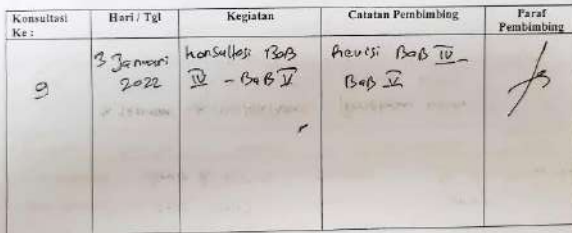 Konsultasi Ke : Hari / Tgl Kegiatan Catatan Pembimbing Paraf Pembimbing
9 3 Januari 2022 konsultasi BAB IV - BAB V Revisi BAB IV - BAB V